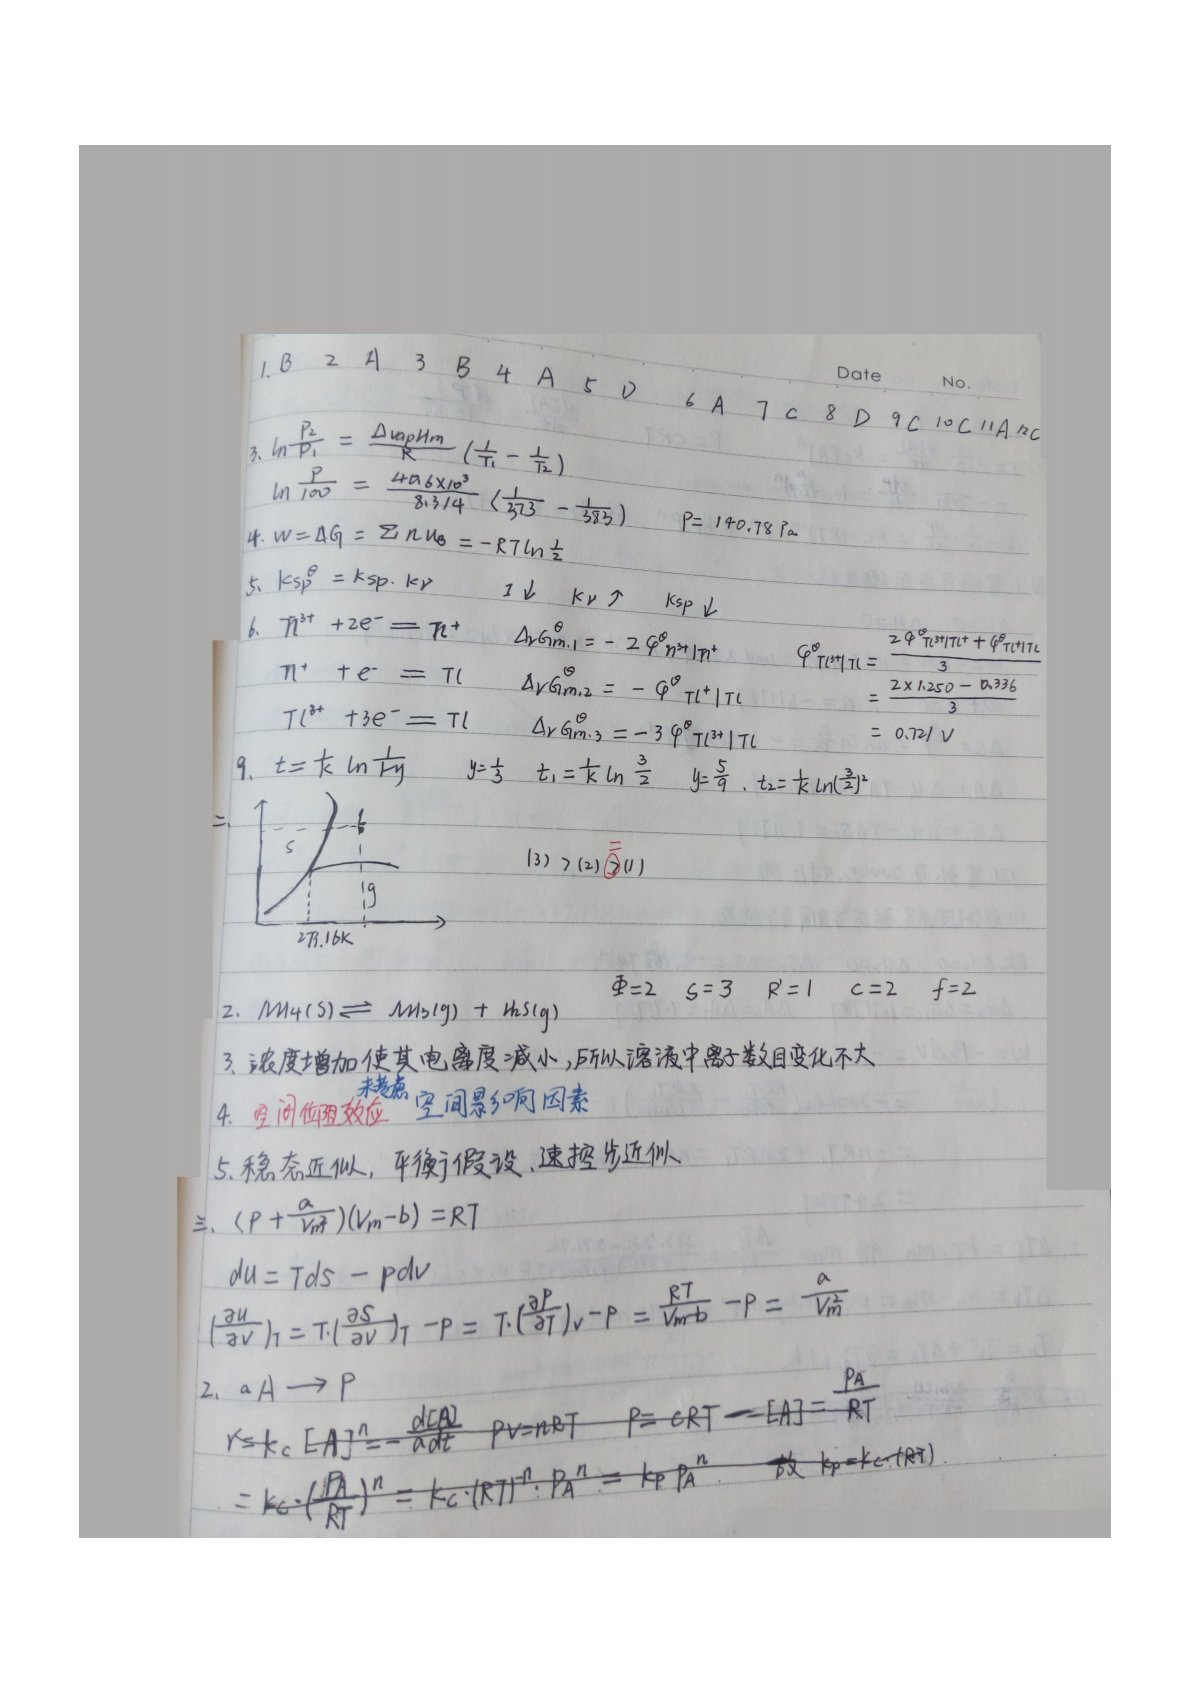 Date No.
1. B 2 A 3 B 4 A 5 D 6 A 7 C 8 D 9 C 10 C 11 A 12 C
3. ln P₂/P₁ = ΔvapHm/R (1/T₁ - 1/T₂)
ln P/100 = 40.6×10³/8.314 (1/373 - 1/383) P= 140.78 Pa
4. W = ΔG = Σnu_B = -RTln 1/2
5. Ksp^θ = Ksp · Kr I↓ Kr↑ Ksp↓
6. Tl³⁺ + 2e⁻ = Tl⁺ ΔrGm.1^θ = - 2φ^θ Tl³⁺|Tl⁺ φ^θ Tl³⁺|Tl = (2φ^θ Tl³⁺|Tl⁺ + φ^θ Tl⁺|Tl)/3
Tl⁺ + e⁻ = Tl ΔrGm.2^θ = - φ^θ Tl⁺|Tl = (2×1.250 - 0.336)/3
Tl³⁺ + 3e⁻ = Tl ΔrGm.3^θ = -3φ^θ Tl³⁺|Tl = 0.721 V
9. t = 1/k ln 1/(1-y) y=1/3 t₁ = 1/k ln 3/2 y=5/9 . t₂ = 1/k ln(3/2)²
二.
S l g
(3) > (2) > (1)
=
273.16K
Φ=2 S=3 R'=1 C=2 f=2
2. NH4(S) ⇌ NH3(g) + H2S(g)
3. 浓度增加使其电离度减小,所以溶液中离子数目变化不大
未考虑
4. 空间位阻效应 空间影响因素
5. 稳态近似, 平衡假设、速控步近似
三. (P + a/Vm²)(Vm-b) = RT
du = Tds - pdv
(∂u/∂v)T = T·(∂S/∂v)T - P = T·(∂P/∂T)v - P = RT/(Vm-b) - P = a/Vm²
2. aA → P
r = kc [A]ⁿ = - d[A]/adt PV=nRT P= cRT [A] = PA/RT
= kc·(PA/RT)ⁿ = kc·(RT)⁻ⁿ·PAⁿ = kp PAⁿ 故 kp = kc·(RT)